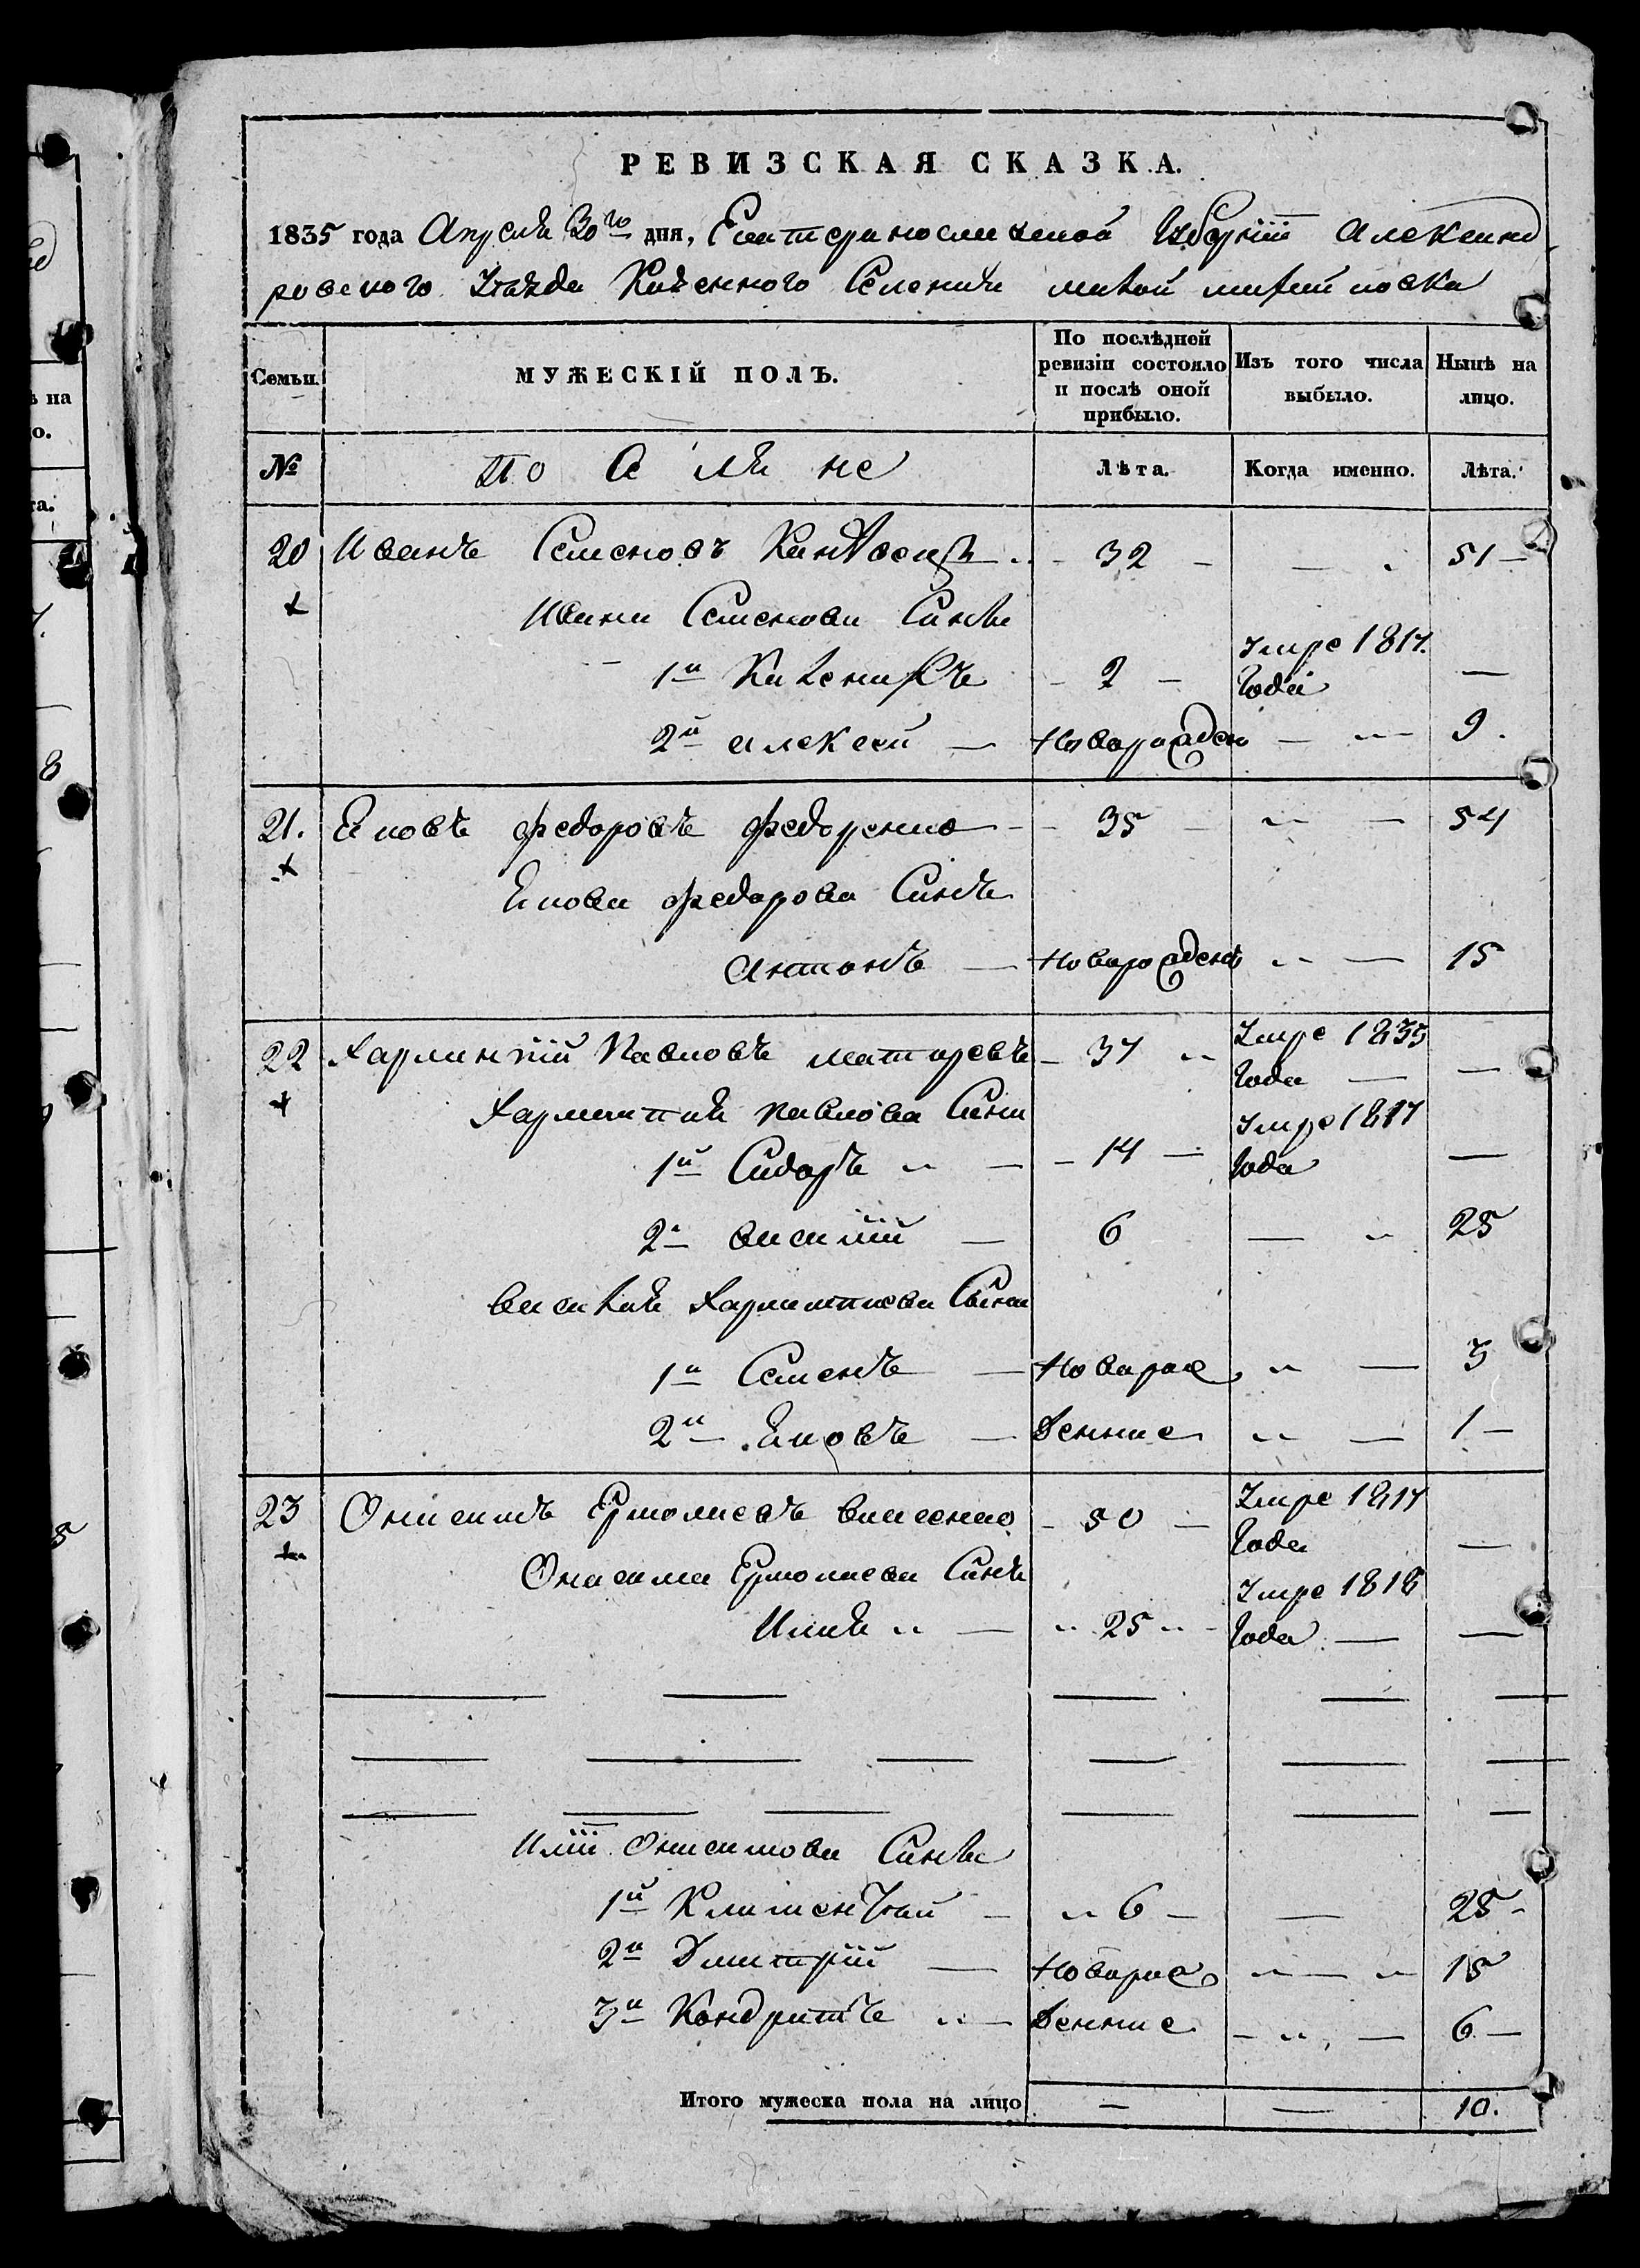 РЕВИЗСКАЯ СКАЗКА.
1835 года Апреля 30го дня, Екатеринославской Губерніи Александ
ровского Уѣзда Казенного Селенія малой михайловки
Семьи. МУЖЕСКІЙ ПОЛЪ. По послѣдней ревизіи состояло и послѣ оной прибыло. Изъ того числа выбыло. Нынѣ на лицо.
№ Лѣта. Когда именно. Лѣта.
20 Иванъ Семеновъ 32 — 51
Ивана Семенова Синве
1й 2 Умре 1817. года —
2й алексей — Новорожден — 9.
21. Яковъ федоровъ федоренко 35 — 54
Якова федорова Синъ
Антонъ — Новорожденъ — 15
22 Харлампій Павловъ 37 Умре 1835 года —
Харлампия Павлова Сини
1й Сидоръ — 14 — Умре 1817 года —
2й василій — 6 — 25
василия Харлампиева Сини
1й Семенъ — Новорож — 3
2й Яковъ — денние — 1
23 Онисимъ Ермолаевъ власенко 50 — Умре 1817 года —
Онисима Ермолаева Синъ
Илия — 25 Умре 1818 года —
Иліи Онисимова Синве
1й Климентий — 6 — 25
2й Дмитрій — Новорож — 15
3й Кондратъ — денние — 6
Итого мужеска пола на лицо — — 10.